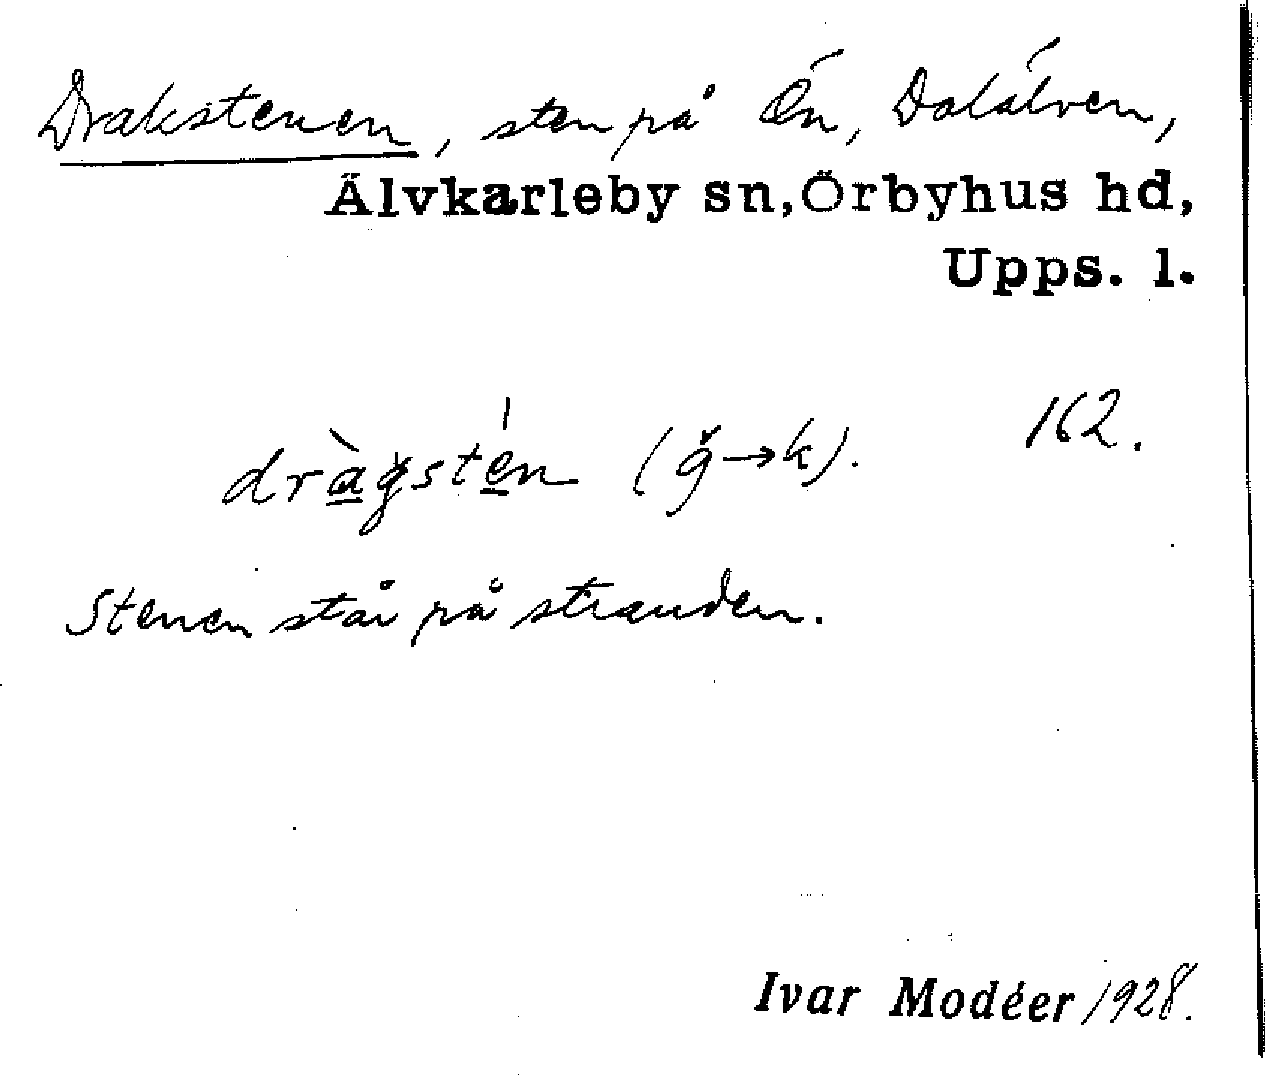 Drakstenen, sten på Ön, Dalälven,
Älvkarleby sn, Örbyhus hd,
Upps. l.
162.
dràǧstén (ğ→k).
Stenen står på stranden.
Ivar Modéer 1928.